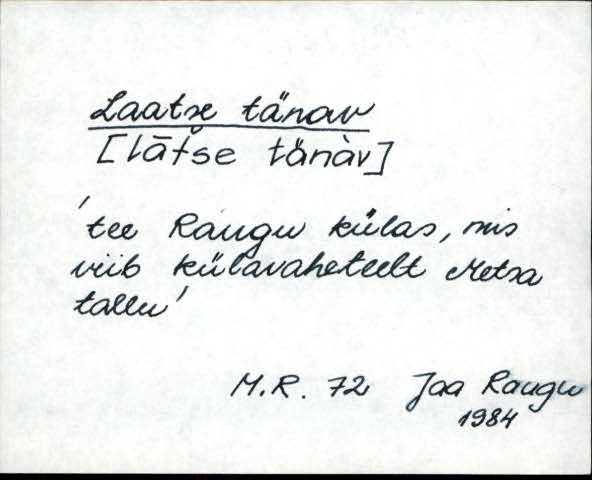 Laatse tänav
[lātše tänàv]
'tee Raugu külas, mis
viib külavaheteelt Metsa
tallu'
M.R. 72 Jaa Raugu
1984